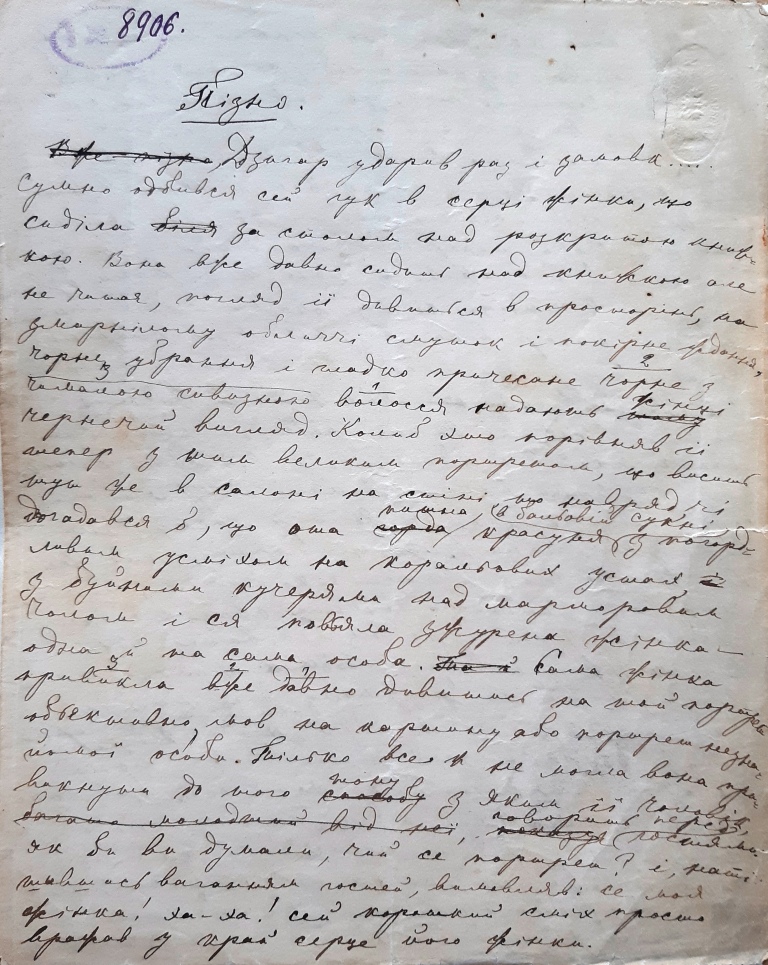 8906.
Пізно.
Уже пізно, Дзигар ударив раз і замовк....
Сумно одбився сей гук в серці жінки, що
сиділа біля за столом над розкритою книж-
кою. Вона вже давно сидить над книжкою але
не читає, погляд її дивиться в просторінь, на
змарнілому обличчі смуток і покірне ждання,
чорне убрання і гладко причесане чорне з 2
3 чималою сивизною волосся 1 надають жінці
чернечий вигляд. Колиб хто порівняв її
тепер з тим великим портретом, що висить
тут же в салоні на стіні, то навряд чи
пишна, в бальовій сукні
догадався б, що ота горда красуня з погорд-
ливим усміхом на коральових устах, і
з буйними кучерями над марморовим
чолом і ся пов'яла зжурена жінка –
одна й та сама особа. Та й Сама жінка
привикла 3 вже 2 давно 1 дивитись на той портрет
об'єктивно, мов на картину або портрет незна-
йомої особи. Тілько все ж не могла вона при-
викнути до того способу тону з яким її чоловік,
багато молодший від неї, говорить перед гостями:
як би ви думали, чий се портрет? і, наті-
шившись ваганням гостей, вимовляв: се моя
жінка! ха-ха! сей короткий сміх просто
вражав у край серце його жінки.